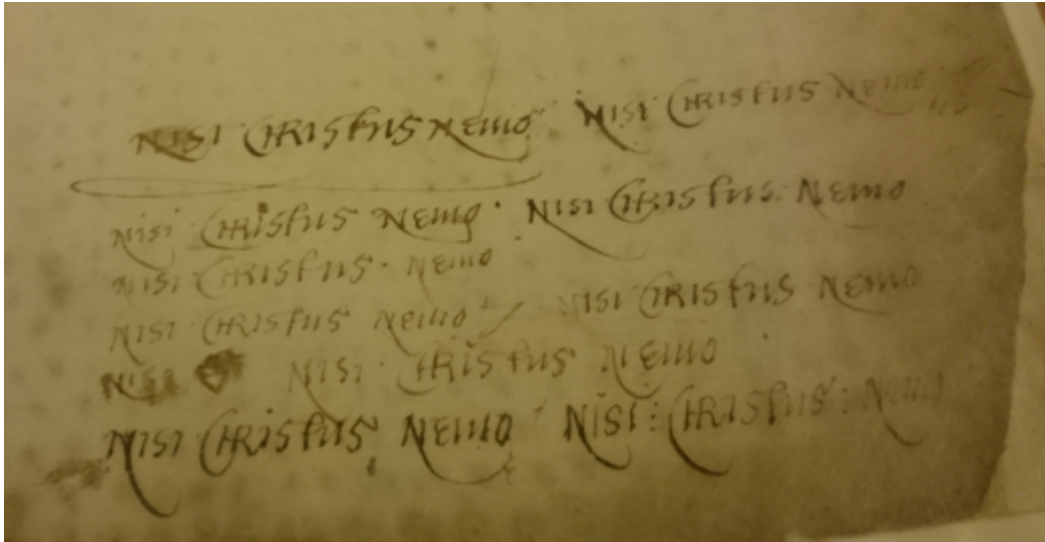 NISI CHRISTUS NEMO NISI CHRISTUS NEMO
NISI CHRISTUS NEMO · NISI CHRISTUS NEMO
NISI CHRISTUS · NEMO
NISI CHRISTUS NEMO NISI CHRISTUS NEMO
NISI NISI · CHRISTUS NEMO
NISI CHRISTUS NEMO NISI : CHRISTUS : NEMO